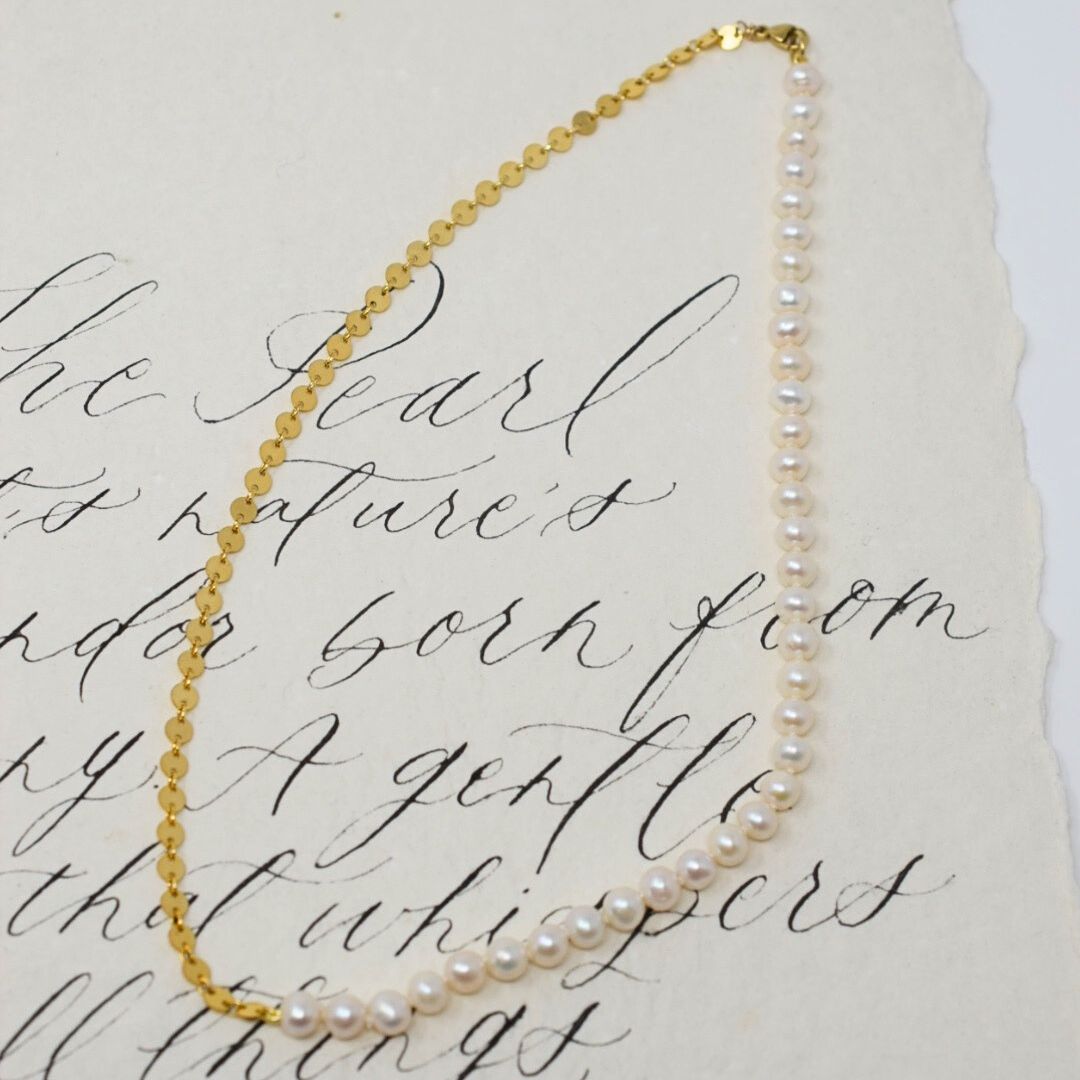 he Pearl
t's nature's
ndor born from
ny. A gentle
that whispers
ll things,